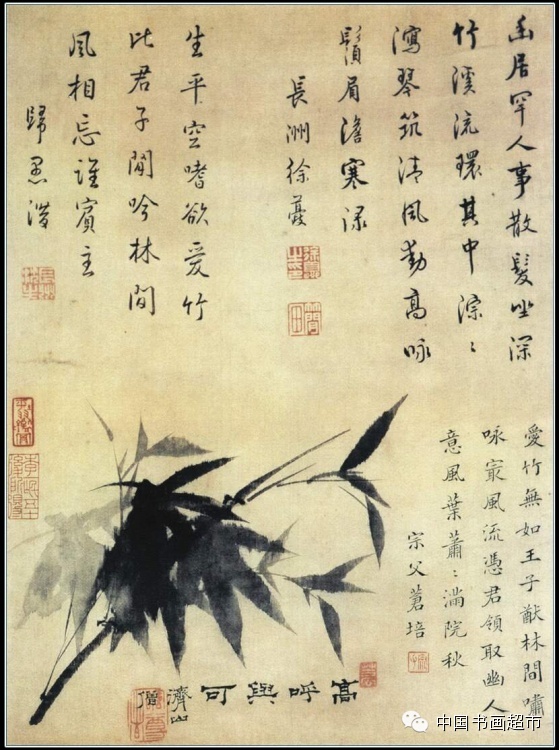 幽居罕人事散髮坐深
竹溪流環其中淙〻
瀉琴筑清風動高咏
鬚眉澹寒淥
長洲徐
生平空嗜欲愛竹
此君子閒吟林間
風相忘誰賓主
歸愚
愛竹無如王子猷林間嘯
咏㝡風流憑君領取幽人
意風葉蕭〻滿院秋
宗父蒼培
高呼與可
濟山僧
中国书画超市